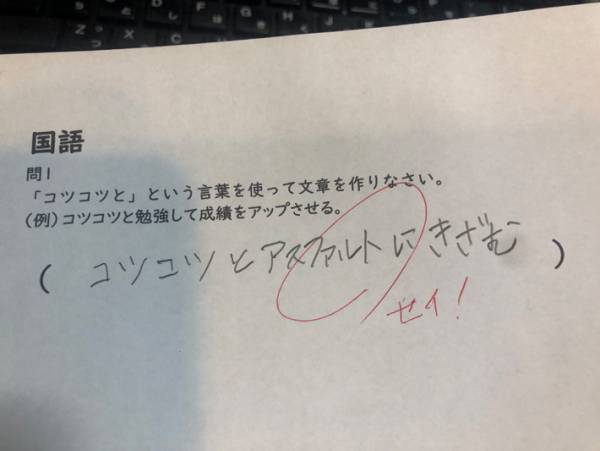 国語
問1
「コツコツと」という言葉を使って文章を作りなさい。
(例)コツコツと勉強して成績をアップさせる。
(コツコツとアスファルトにきざむ)
セイ!